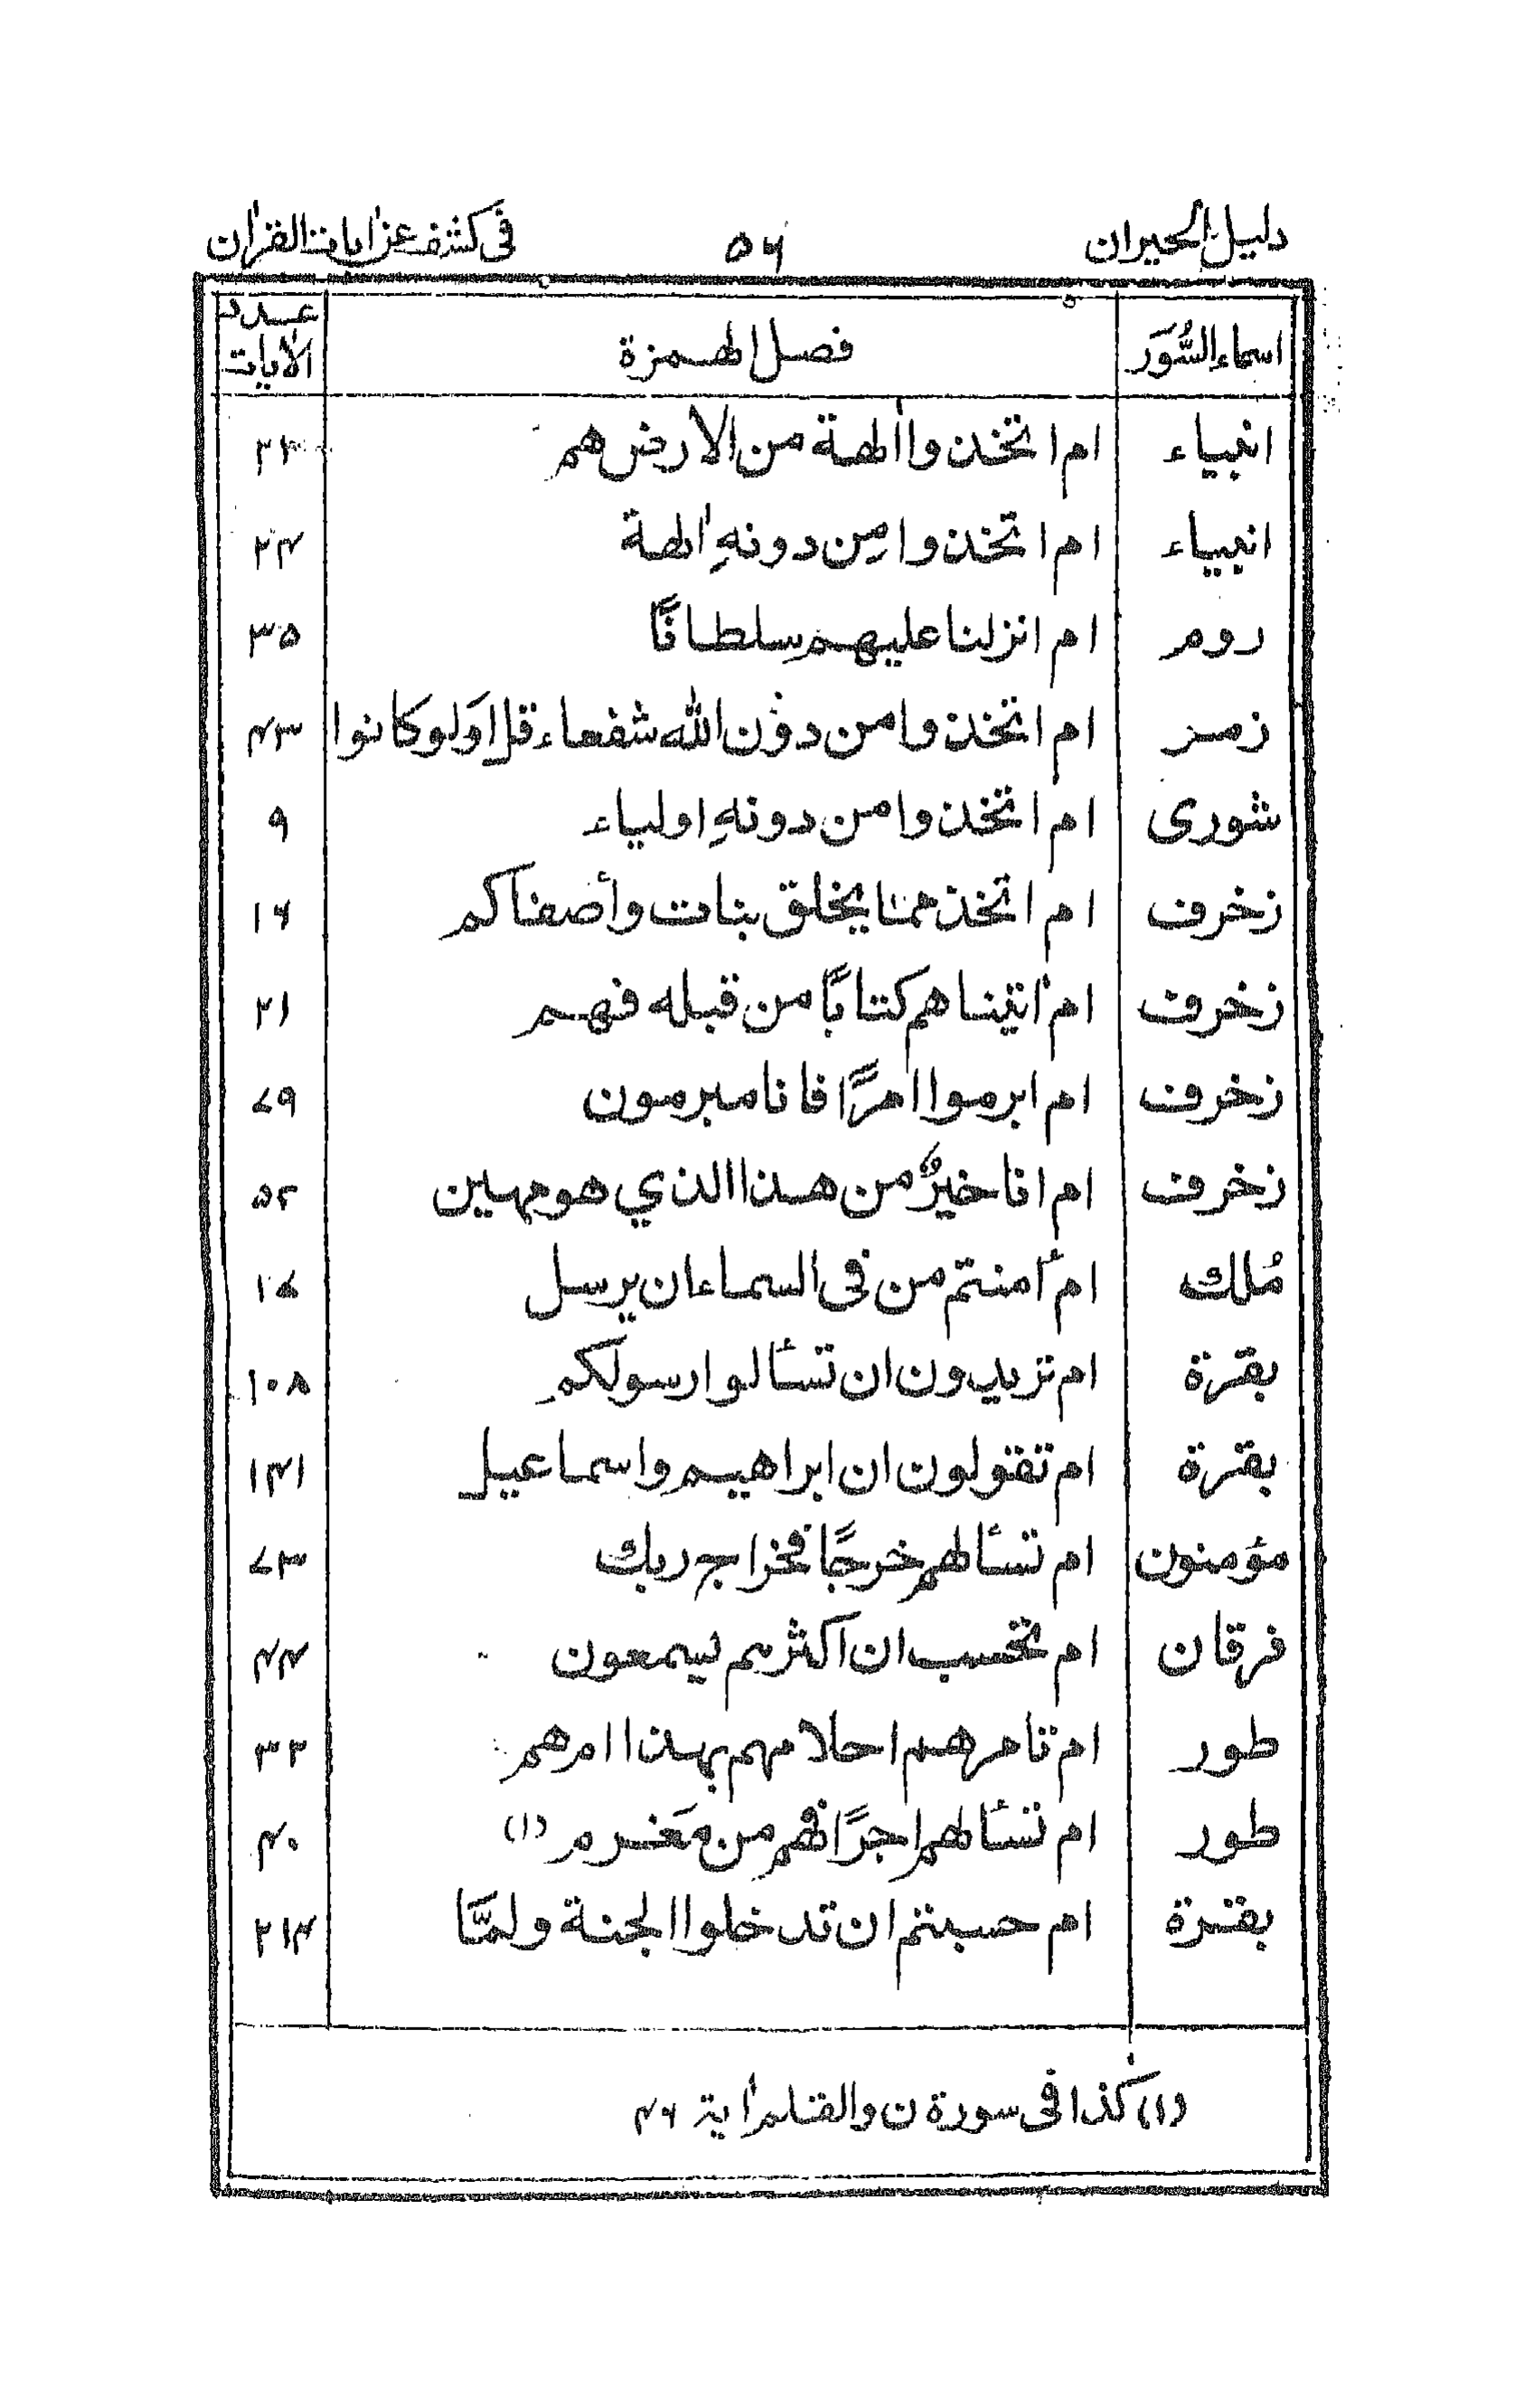 دليل الحيران ٥٦ في كشف عن اٰيات القراٰن
اسماء السُّوَر فصل الهمزة عدد الاٰيات
انبياء ام اتخذوا اٰلهة من الارض هم ٢١
انبياء ام اتخذوا مِن دونهِ اٰلهة ٢٤
روم ام انزلنا عليهم سلطانًا ٣٥
زمر ام اتخذوا من دوُن الله شفعاء قل اوَلو كانوا ٤٣
شورى ام اتخذوا من دونهِ اولياء ٩
زخرف ام اتخذ مما يخلق بنات وأصفاكم ١٦
زخرف ام اٰتيناهم كتابًا من قبله فهم ٢١
زخرف ام ابرموا امرًا فانا مبرمون ٧٩
زخرف ام انا خيرٌ من هذا الذي هو مهين ٥٢
مُلك ام أمنتم من فى السماء ان يرسل ١٧
بقرة ام تريدون ان تسألوا رسولكم ١٠٨
بقرة ام تقولون ان ابراهيم واسماعيل ١٤١
مؤمنون ام تسألهم خرجًا فخراج ربك ٧٣
فرقان ام تحسب ان اكثرهم يسمعون ٤٤
طور ام تامرهم احلامهم بهذا ام هم ٣٢
طور ام تسألهم اجرًا فهم من مَغرم (١) ٤٠
بقرة ام حسبتم ان تدخلوا الجنة ولمَّا ٢١٤
(١) كذا فى سورة ن والقلم اٰية ٤٦